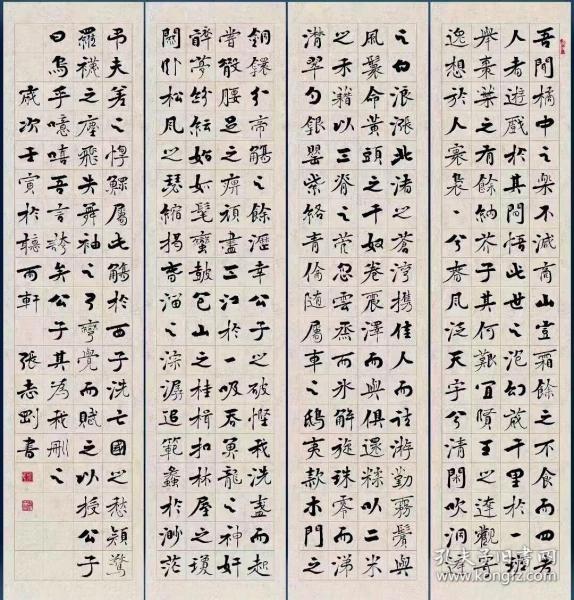 吾聞橘中之樂不減商山豈霜餘之不食而四老
人者遊戲於其間悟此世之泡幻藏千里於一斑
舉棗葉之有餘納芥子其何艱宜賢王之達觀寄
逸想於人寰裊、兮春風泛天宇兮清閑吹洞庭
之白浪漲北渚之蒼灣攜佳人而往游勤霧鬢與
風鬟命黃頭之千奴卷震澤而與俱還糅以二米
之禾藉以三脊之菅忽雲烝而冰解旋珠零而涕
潸翠勺銀罌紫絡青綸隨屬車之鴟夷款木門之
銅鐶分帝觴之餘瀝幸公子之破慳我洗盞而起
嘗散腰足之痹頑盡三江於一吸吞魚龍之神奸
醉夢紛紜始如髦蠻鼓包山之桂楫扣林屋之瓊
關臥松風之瑟縮揭春溜之淙潺追範蠡於渺茫
吊夫差之惸鰥屬此觴於西子洗亡國之愁顏驚
羅襪之塵飛失舞袖之弓彎覺而賦之以授公子
曰烏乎噫嘻吾言誇矣公子其為我刪之
歲次壬寅於聽雨軒 張志剛書
孔夫子旧书网
www.kongfz.com